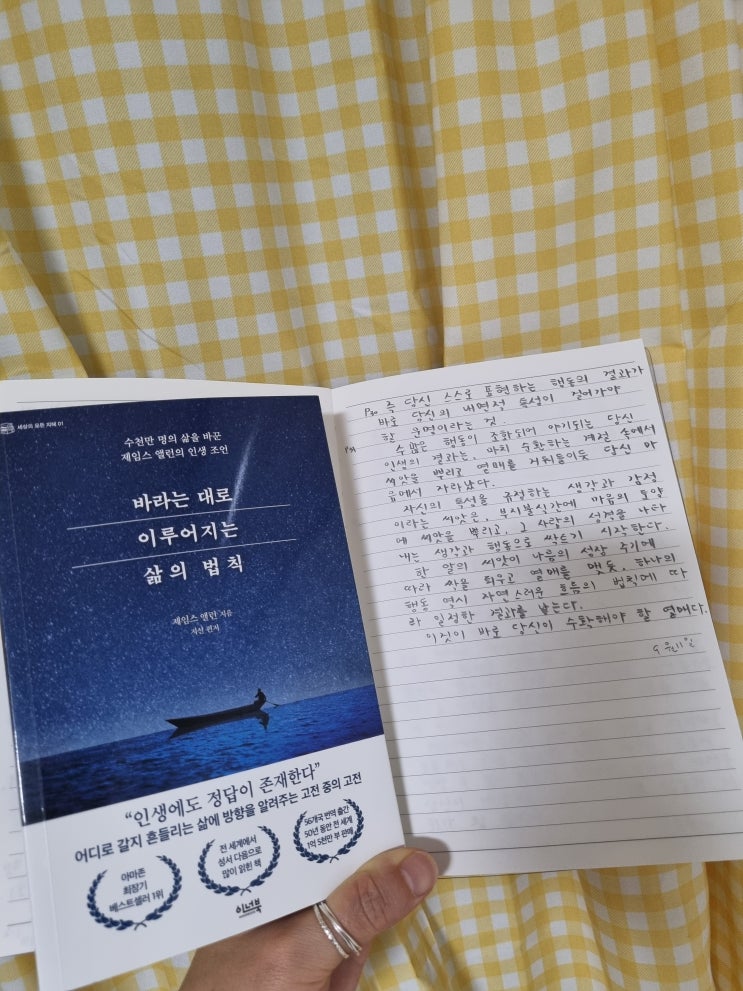 세상의 모든 지혜 01
수천만 명의 삶을 바꾼
제임스 앨런의 인생 조언
바라는 대로
이루어지는
삶의 법칙
제임스 앨런 지음
지선 편저
“인생에도 정답이 존재한다”
어디로 갈지 흔들리는 삶에 방향을 알려주는 고전 중의 고전
아마존
최장기
베스트셀러 1위
전 세계에서
성서 다음으로
많이 읽힌 책
56개국 번역 출간
50년 동안 전 세계
1억 5천만 부 판매
이너북
P30 즉 당신 스스로 표현하는 행동의 결과가
바로 당신의 내면적 속성이 걸어가야
할 운명이라는 것.
P31 수많은 행동이 조화되어 야기되는 당신
인생의 결과는, 마치 순환하는 계절 속에서
씨앗을 뿌리고 열매를 거둬들이듯 당신 마
음에서 자라났다.
자신의 속성을 규정하는 생각과 감정
이라는 씨앗은, 부지불식간에 마음의 토양
에 씨앗을 뿌리고, 그 사람의 성격을 나타
내는 생각과 행동으로 싹트기 시작한다.
한 알의 씨앗이 나름의 성장 주기에
따라 싹을 틔우고 열매를 맺듯, 하나의
행동 역시 자연스러운 흐름의 법칙에 따
라 일정한 결과를 낳는다.
이것이 바로 당신이 수확해야 할 열매다.